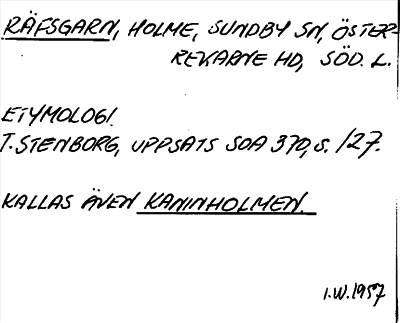 RÄFSGARN, HOLME, SUNDBY SN, ÖSTER-
REKARNE HD, SÖD. L.
ETYMOLOGI.
T. STENBORG, UPPSATS SOA 370, S. 127.
KALLAS ÄVEN KANINHOLMEN.
I.W. 1957